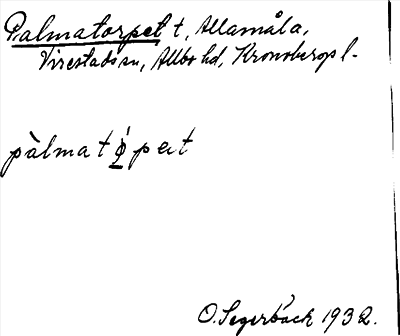 Palmatorpet t, Allamåla,
Virestads sn, Allbo hd, Kronobergs l.
pàlmatø̀pet
O. Segerbäck 1932.